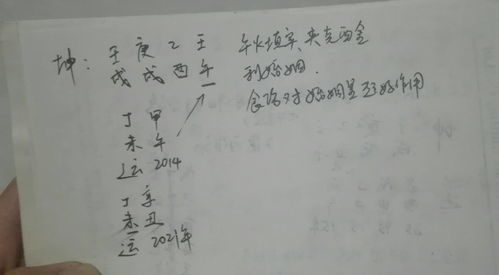 坤：壬庚乙壬
戌戌酉午
午火填实 夹克酉金
利婚姻.
食伤对婚姻是起好作用
丁甲
未午
运2014
丁辛
未丑
运2021年